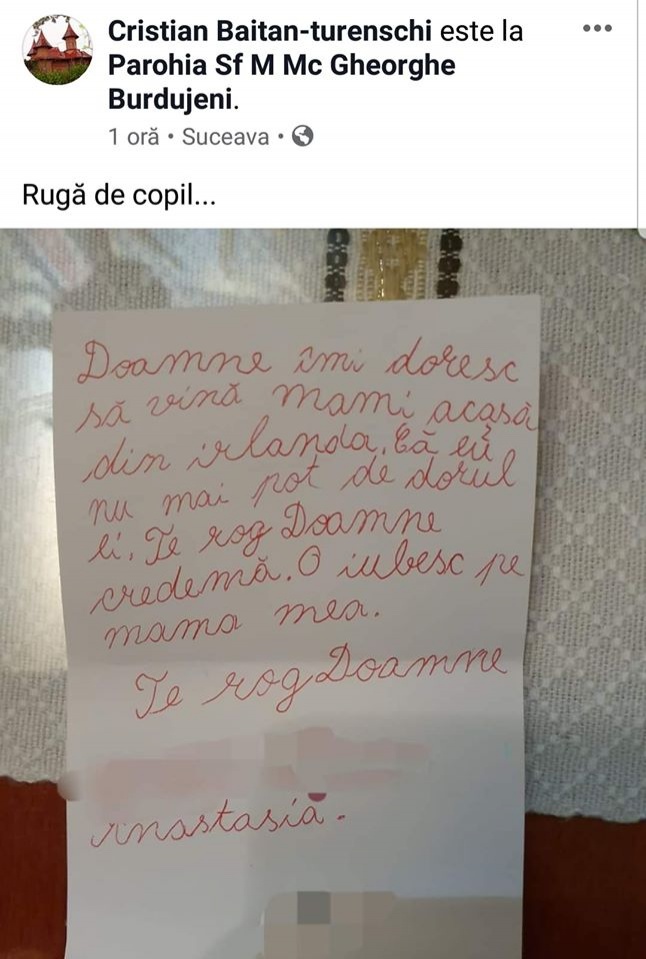 Cristian Baitan-turenschi este la
Parohia Sf M Mc Gheorghe
Burdujeni.
1 oră • Suceava •
Rugă de copil...
Doamne îmi doresc
să vină mami acasă
din irlanda. Că eu
nu mai pot de dorul
li. Te rog Doamne
credemă. O iubesc pe
mama mea.
Te rog Doamne
Anastasia.